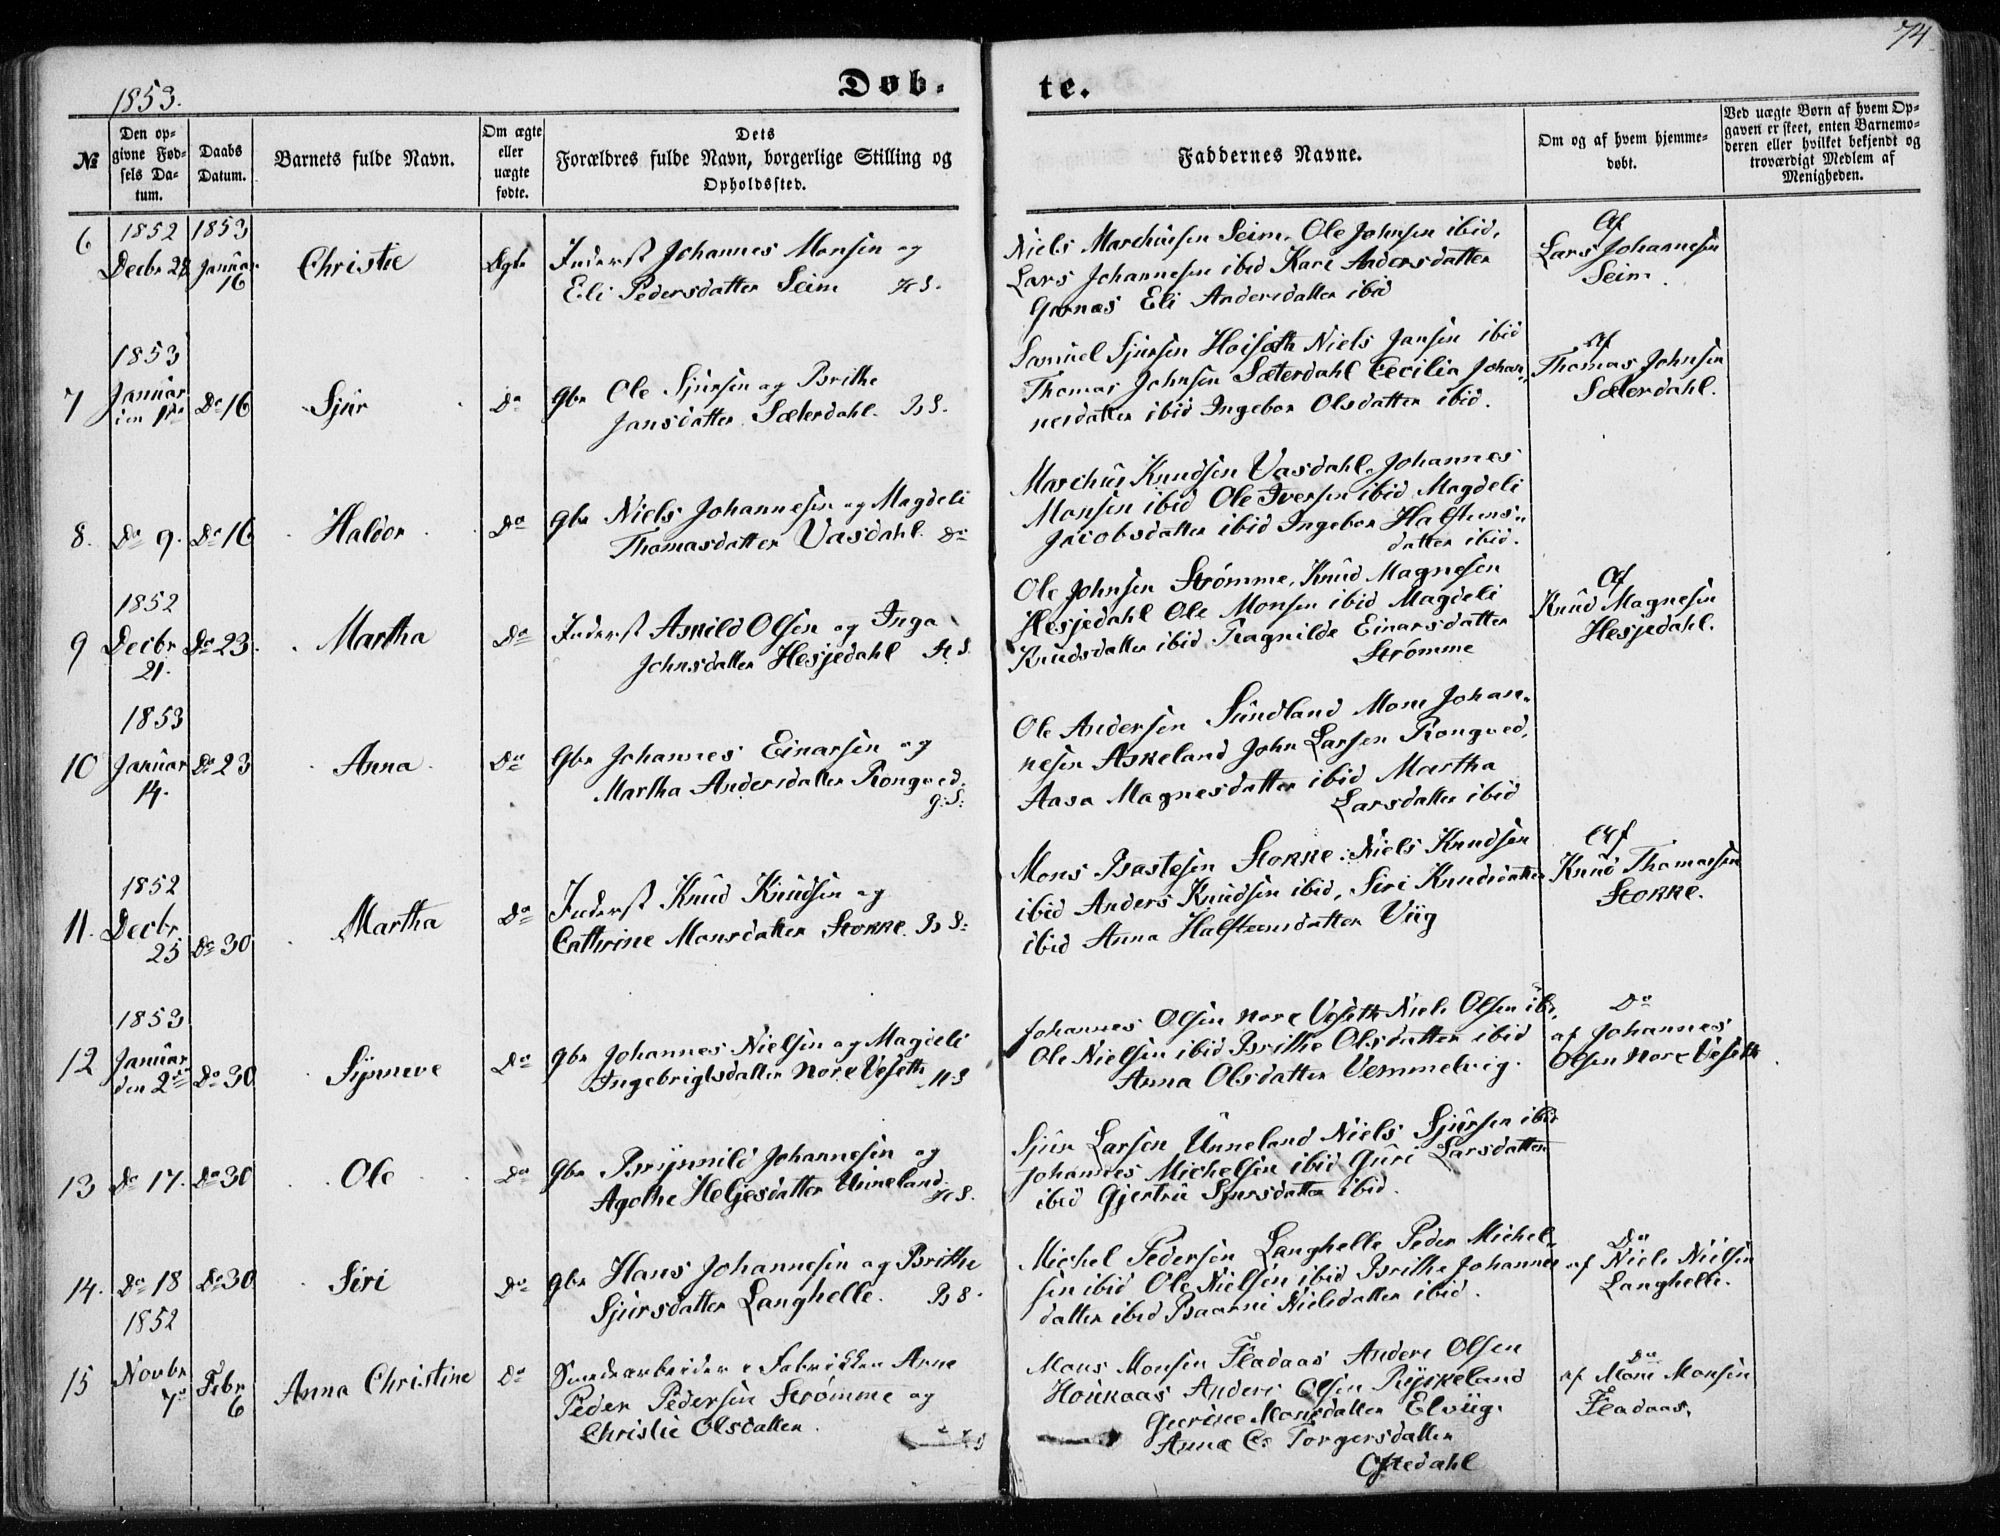 74
1853.
Døb-
te.
№
Den op-
givne Fød-
sels Da-
tum.
Daabs
Datum.
Barnets fulde Navn.
Om ægte
eller
uægte
fødte.
Dets
Forældres fulde Navn, borgerlige Stilling og
Opholdssted.
Faddernes Navne.
Om og af hvem hjemme-
døbt.
Ved uægte Børn af hvem Op-
gaven er skeet, enten Barnemo-
deren eller hvilket bekjendt og
troværdigt Medlem af
Menigheden.
6
1852
Decbr 28
1853
Januar
16
Christie
Ægte
Inderst Johannes Monsen og
Eli Pedersdatter Seim
H S.
Niels Marchusen Seim, Ole Johnsen ibid,
Lars Johannesen ibid Kari Andersdatter
Garnæs Eli Andersdatter ibid
Af
Lars Johannesen
Seim.
7
1853
Januar
den 1ste
Do 16
Sjur
Do
Gbr Ole Sjursen og Brithe
Jansdatter Sæterdahl. B S.
Samuel Sjursen Hoisæth Niels Jansen ibid
Thomas Johnsen Sæterdahl Cecilia Johan-
nesdatter ibid Ingebor Olsdatter ibid.
Af
Thomas Johnsen
Sæterdahl.
8.
Do 9.
Do 16
Haldor
Do
Gbr Niels Johannesen og Magdeli
Thomasdatter Vasdahl. Do
Marchus Knudsen Vasdahl, Johannes
Monsen ibid Ole Iversen ibid Magdeli
Jacobsdatter ibid Ingebor Halsteens-
datter ibid.
9
1852
Decbr
21.
Do 23.
Martha
Do
Inderst Askild Olsen og Inga
Johnsdatter Hesjedahl H S.
Ole Johnsen Strømme, Knud Magnesen
Hesjedahl Ole Monsen ibid Magdeli
Knudsdatter ibid Ragnilde Einarsdatter
Strømme
Af
Knud Magnesen
Hesjedahl.
10
1853
Januar
14.
Do 23
Anna
Do
Gbr Johannes Einarsen og
Martha Andersdatter Rongved.
g: S:
Ole Andersen Sundland Mons Johan-
nesen Askeland John Larsen Rongved,
Aasa Magnesdatter ibid Martha
Larsdatter ibid
11.
1852
Decbr.
25
Do 30
Martha
Do
Inderst Knud Knudsen og
Cathrine Monsdatter Storke. B S:
Mons Bastesen Storke. Niels Knudsen
ibid Anders Knudsen ibid, Siri Knudsdatter
ibid Anna Halsteensdatter Viig
Af
Knud Thomassen
Storke.
12
1853
Januar
den 2den
Do 30
Synneve
Do
Gbr Johannes Nielsen og Magdeli
Ingebrigtsdatter Nore Veseth H S
Johannes Olsen Nore Veseth Niels Olsen ibi,
Ole Nielsen ibid Brithe Olsdatter ibid
Anna Olsdatter Vemmelvig.
Do
af Johannes
Olsen Nore Veseth.
13
Do 17.
Do 30
Ole
Do
Gbr Brynnild Johannesen og
Agathe Heljesdatter Unneland
H S.
Sjur Larsen Unneland Niels Sjursen ibid
Johannes Michelsen ibid Guri Larsdatter
ibid Gjertru Sjursdatter ibid.
14.
Do 18
Do 30
Siri
Do
Gbr Hans Johannesen og Brithe
Sjursdatter Langhelle. B S.
Michel Pedersen Langhelle Peder Michel-
sen ibid Ole Nielsen ibid Brithe Johannes
datter ibid Baarni Nielsdatter ibid.
Do
af Niels Nielsen
Langhelle.
15
1852
Novbr
7de
Febr
6
Anna Christine
Do
Smedearbeider i Fabrikken Arne
Peder Pedersen Strømme og
Christie Olsdatter.
Mons Monsen Fladaas Anders Olsen
Houkaas Anders Olsen Ryskeland
Geerine Monsdatter Elviig.
Anna C. Torgersdatter
Oftedahl
Do
af Mons Monsen
Fladaas.